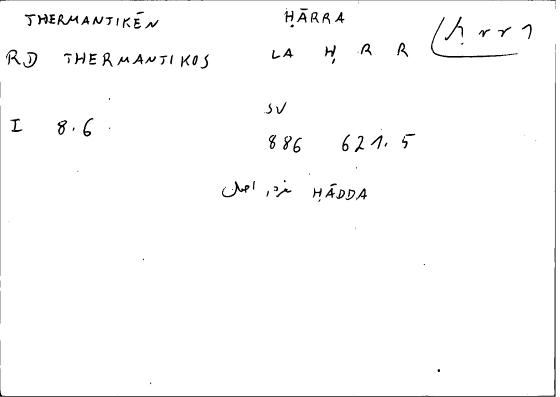 THERMANTIKĒN ḤĀRRA
RD THERMANTIKOS LA Ḥ R R ḥrr1
SV
I 8.6 886 621.5
في الاصل ḤĀDDA